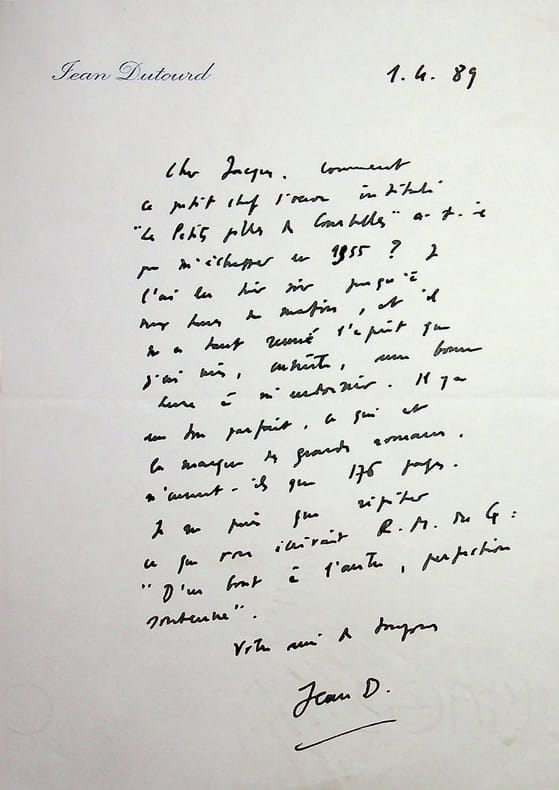 Jean Dutourd
1. 4. 89
Cher Jacques. Comment
ce petit chef d'œuvre intitulé
"Les Petites filles de Courbelles" a-t-il
pu m'échapper en 1955 ? Je
l'ai lu hier soir jusqu'à
heures du matin, et il
m'a tant remué l'esprit que
j'ai mis, ensuite, une bonne
heure à m'endormir. Il y a
un ton parfait, ce qui est
la marque des grands romans,
n'eussent-ils que 176 pages.
Je ne puis que répéter
ce que vous écrivait R. M. du G :
"D'un bout à l'autre, perfection
soutenue".
Votre ami de toujours
Jean D.